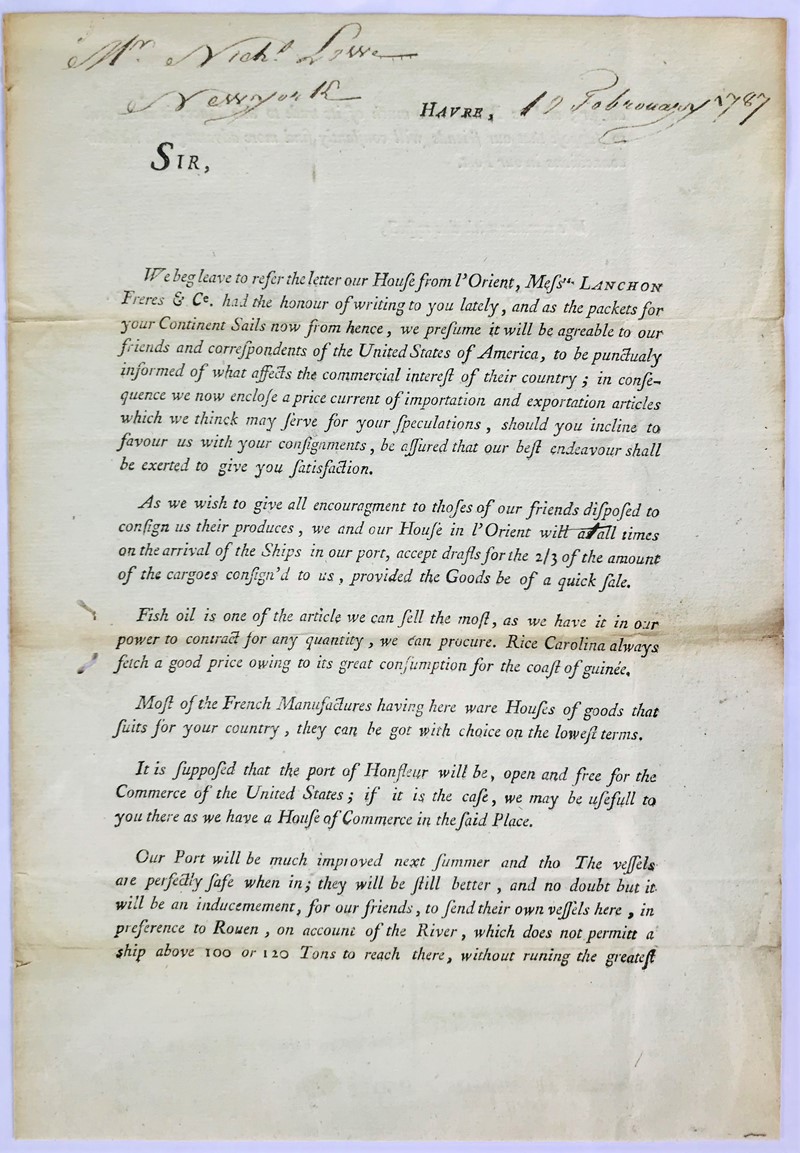 Mr. Nichs Lowe
Newyork
HAVRE, 12 February 1787
SIR,
We beg leave to refer the letter our Houſe from l'Orient, Meſsrs. LANCHON
Freres & Ce. had the honour of writing to you lately, and as the packets for
your Continent Sails now from hence, we preſume it will be agreable to our
friends and correſpondents of the United States of America, to be punctualy
informed of what affects the commercial intereſt of their country; in conſe-
quence we now encloſe a price current of importation and exportation articles
which we thinck may ſerve for your ſpeculations, should you incline to
favour us with your conſignments, be aſſured that our beſt endeavour shall
be exerted to give you ſatisfaction.
As we wish to give all encouragment to thoſes of our friends diſpoſed to
conſign us their produces, we and our Houſe in l'Orient will at all times
on the arrival of the Ships in our port, accept drafts for the 2/3 of the amount
of the cargoes conſign'd to us, provided the Goods be of a quick ſale.
Fish oil is one of the article we can ſell the moſt, as we have it in our
power to contract for any quantity, we can procure. Rice Carolina always
fetch a good price owing to its great conſumption for the coaſt of guinée.
Moſt of the French Manufactures having here ware Houſes of goods that
ſuits for your country, they can be got with choice on the loweſt terms.
It is ſuppoſed that the port of Honfleur will be, open and free for the
Commerce of the United States; if it is the caſe, we may be uſefull to
you there as we have a Houſe of Commerce in the ſaid Place.
Our Port will be much improved next ſummer and tho The veſſels
are perfectly ſafe when in; they will be ſtill better, and no doubt but it
will be an inducemement, for our friends, to ſend their own veſſels here, in
preference to Rouen, on account of the River, which does not permitt a
ship above 100 or 120 Tons to reach there, without runing the greateſt